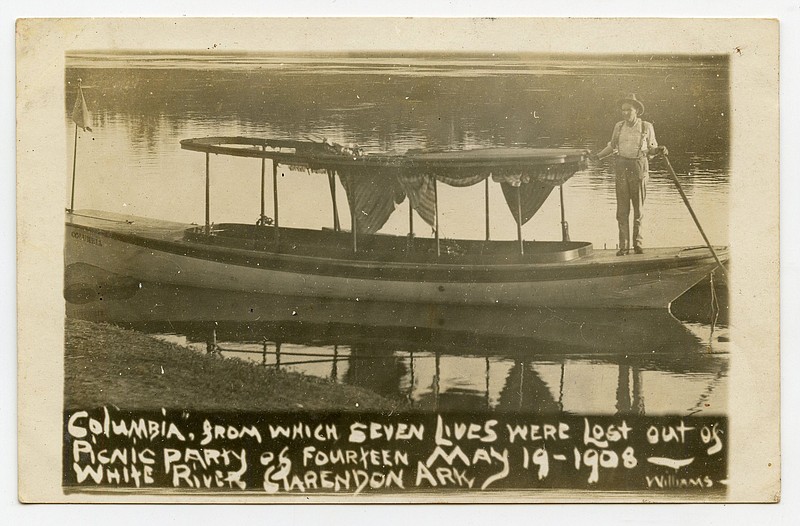 COLUMBIA
Columbia", from which seven Lives were Lost out of
Picnic party of fourteen May 19-1908 —
White River Clarendon Ark,
Williams -